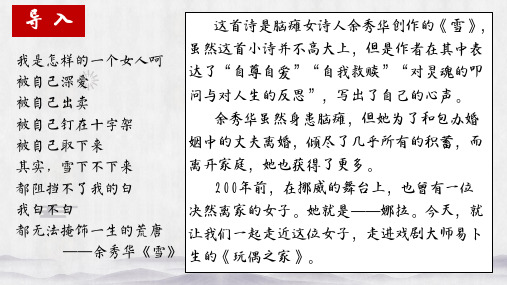 导 入
我是怎样的一个女人呵
被自己深爱
被自己出卖
被自己钉在十字架
被自己取下来
其实，雪下不下来
都阻挡不了我的白
我白不白
都无法掩饰一生的荒唐
——余秀华《雪》
这首诗是脑瘫女诗人余秀华创作的《雪》，
虽然这首小诗并不高大上，但是作者在其中表
达了“自尊自爱”“自我救赎”“对灵魂的叩
问与对人生的反思”，写出了自己的心声。
余秀华虽然身患脑瘫，但她为了和包办婚
姻中的丈夫离婚，倾尽了几乎所有的积蓄，而
离开家庭，她也获得了更多。
200年前，在挪威的舞台上，也曾有一位
决然离家的女子。她就是——娜拉。今天，就
让我们一起走近这位女子，走进戏剧大师易卜
生的《玩偶之家》。